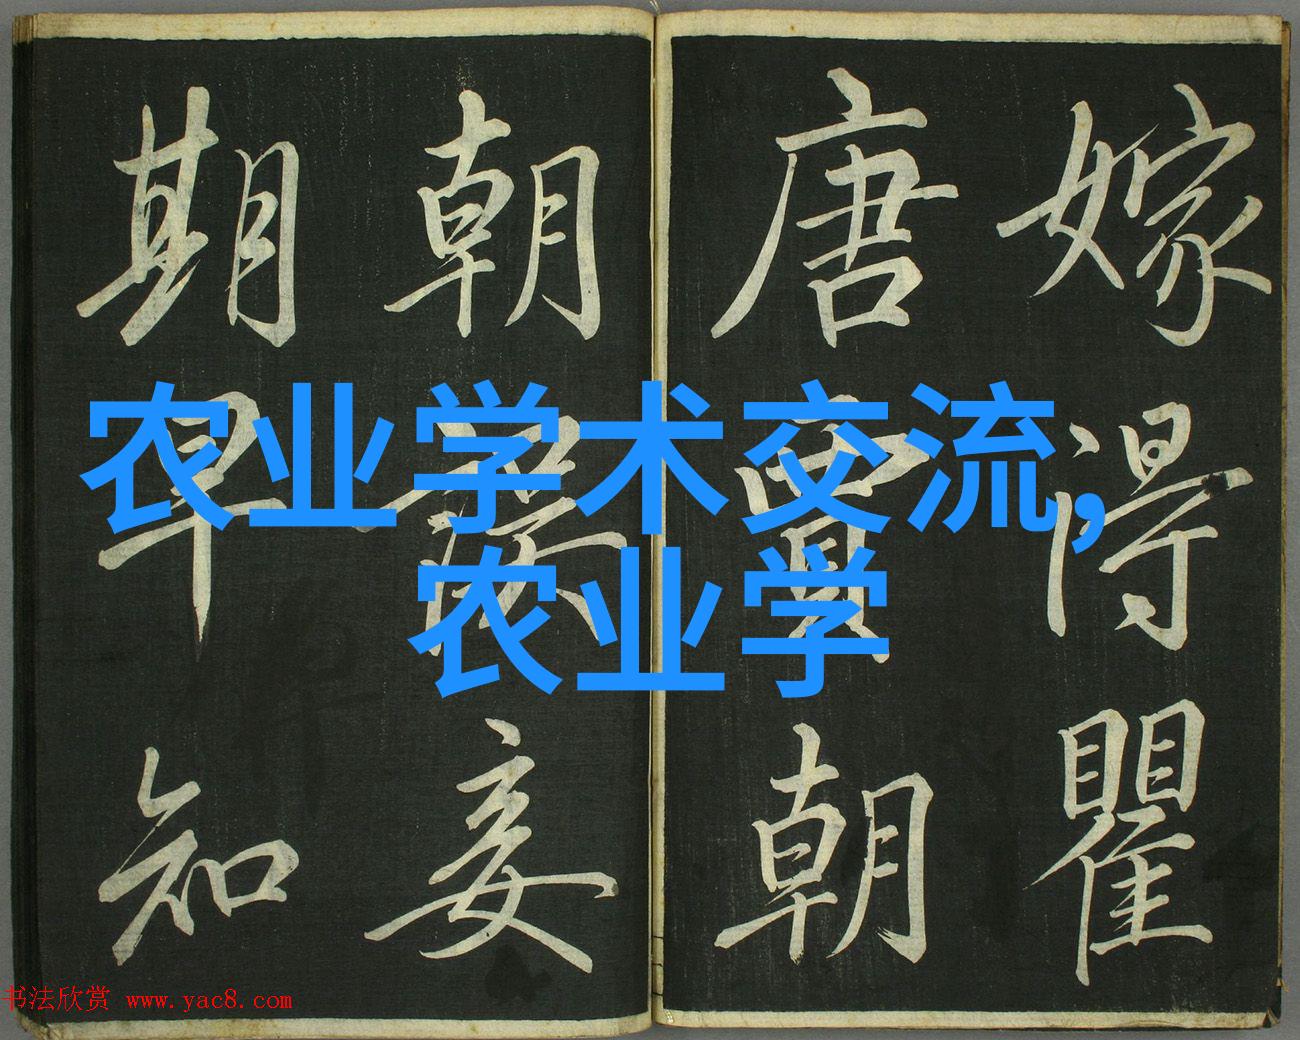 嫁得瞿
唐賈朝
朝妾
期早知
农业学术交流,
农业学
书法欣赏 www.yac8.com